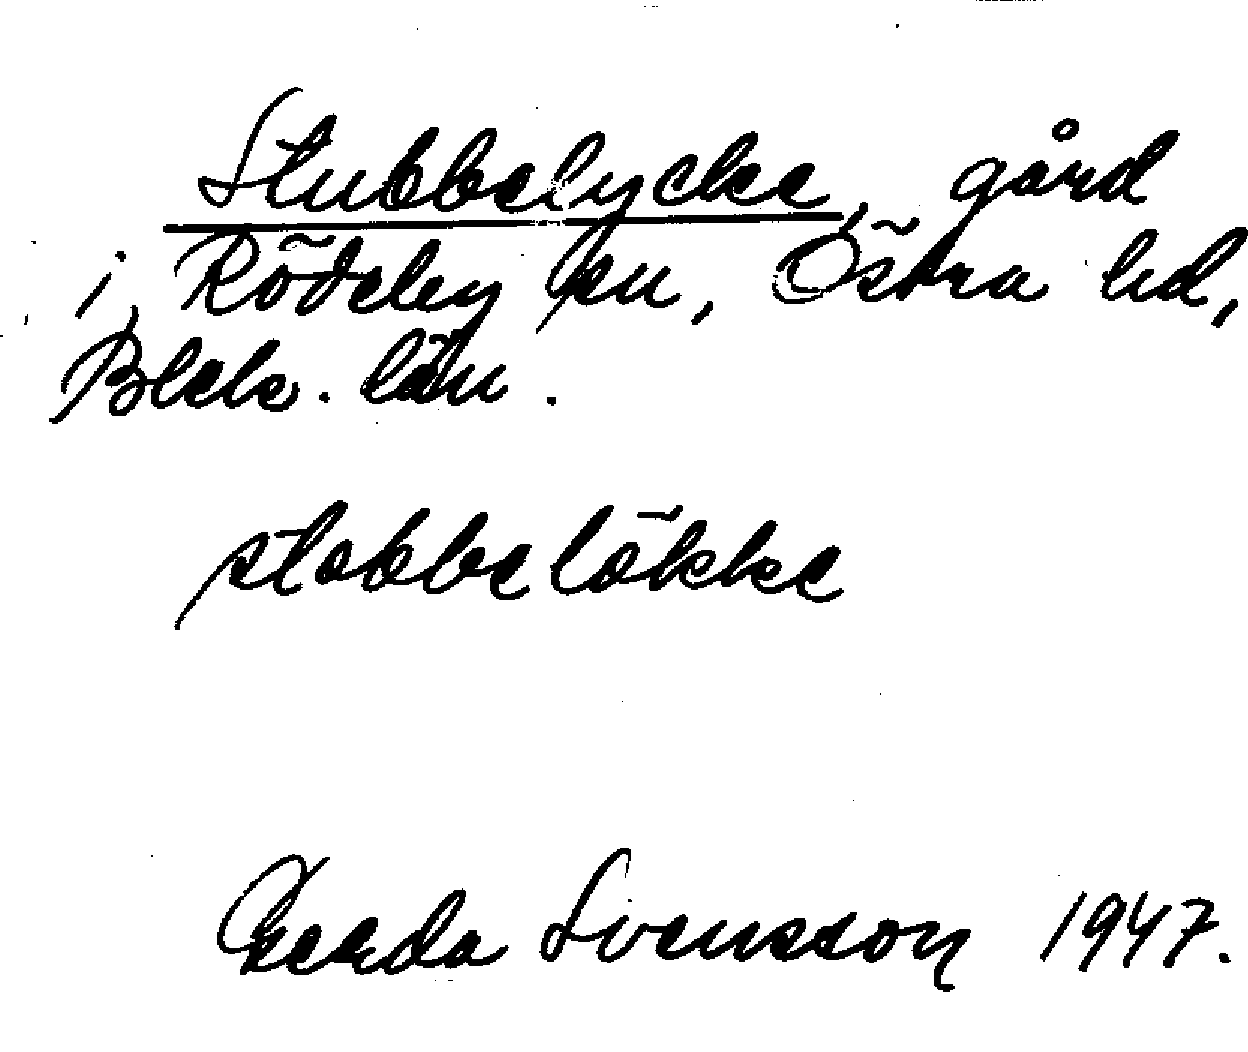 Stubbelycke, gård
i Rödeby sn, Östra hd,
Blek. län.
stobbelökke
Gerda Svensson 1947.